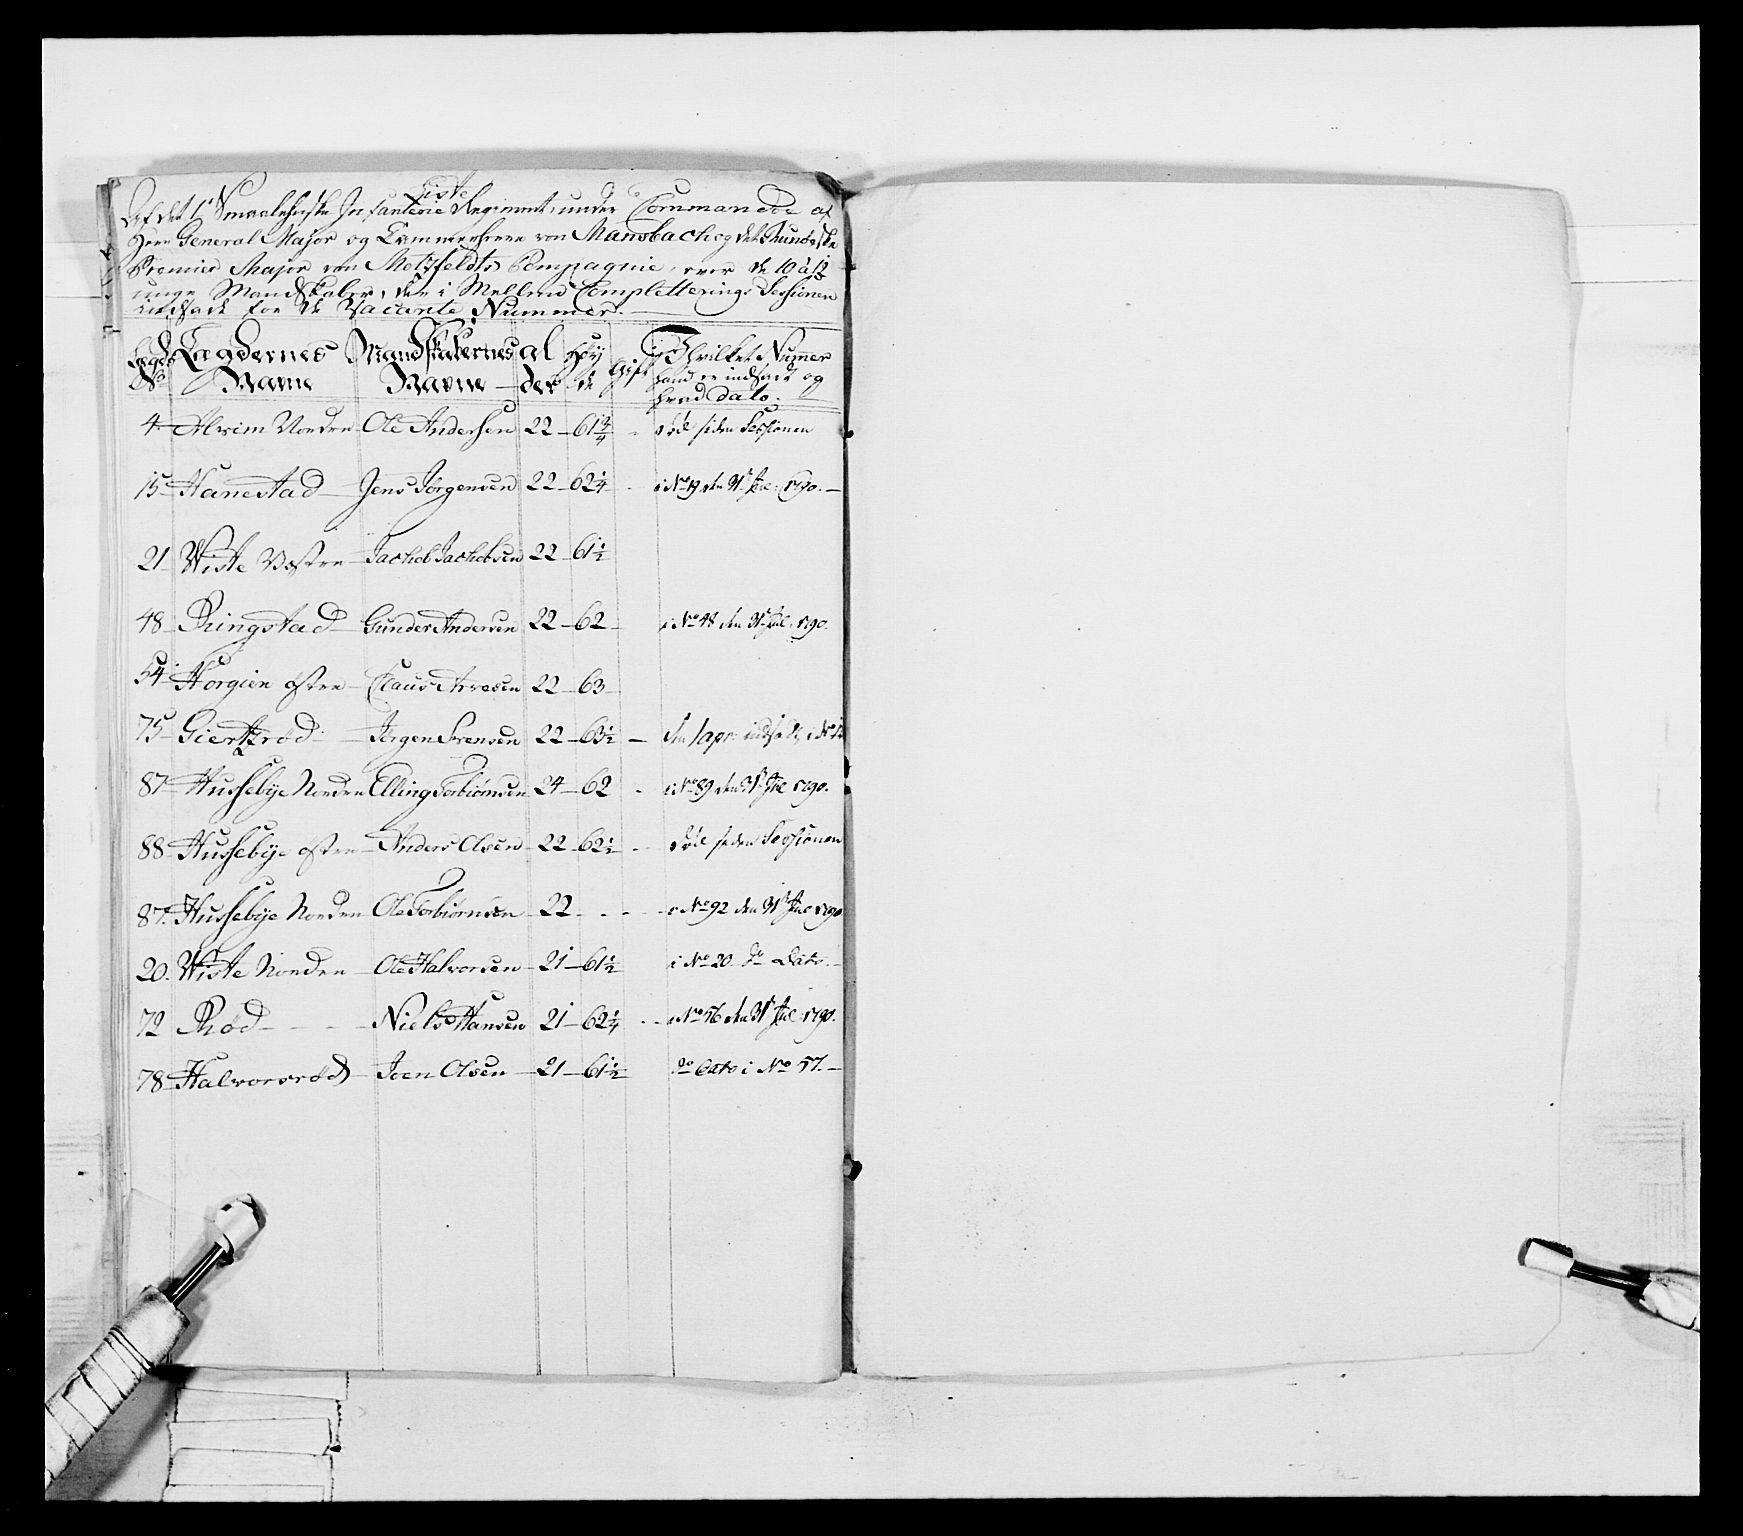 Liste
Af det 1te Smaalehnske Infanterie Regiment, under Commando af
Herr General Major og Kammerherre von Mansbach og det
Premier Major von Motzfeldts Compagnie, over de 10 à 12
unge Mandskaber, der i Mellem Completterings Sessionen
udsadt for de Vacante Nummer.
Lægds No Lægdernes Navne Mandskabernes Navne alder Høyde Gift I Hvilket Numer
hand er indsadt og
hvad dato.
4. Alvim Norden Ole Andersen 22 61 3/4 - død siden Sessionen
15 Hanestad Jens Jørgensen 22 62 1/4 - i No 19 den 31te Jul: 1790.
21 Wiste Vestre Jachob Jachobsen 22 61 1/2
48 Ringstad Gunder Andersen 22 62 i No 48 den 31te Jul: 1790.
54 Horgien østre Claus Arvesen 22 63
75 Giertzrød Jørgen Sørensen 22 63 1/2 - den 1 apr: indsadt i No
87 Hussebye Norden Elling Torbiørnsen 24 62 - i No 89 den 31te Jul 1790.
88 Hussebye østre Anders Olsen 22 62 1/2 - død siden Sessionen
87. Hussebye Norden Ole Torbiørnsen 22 - - - i No 92 den 31te Jul 1790
20. Wiste Norden Ole Halvorsen 21 61 1/2 i No 20 do Dato.
72 Rød Niels Hansen 21 62 1/4 - i No 76 den 31te Jul: 1790.
78 Halvorsrød Joen Olsen 21 61 1/2 do Dato i No 57.